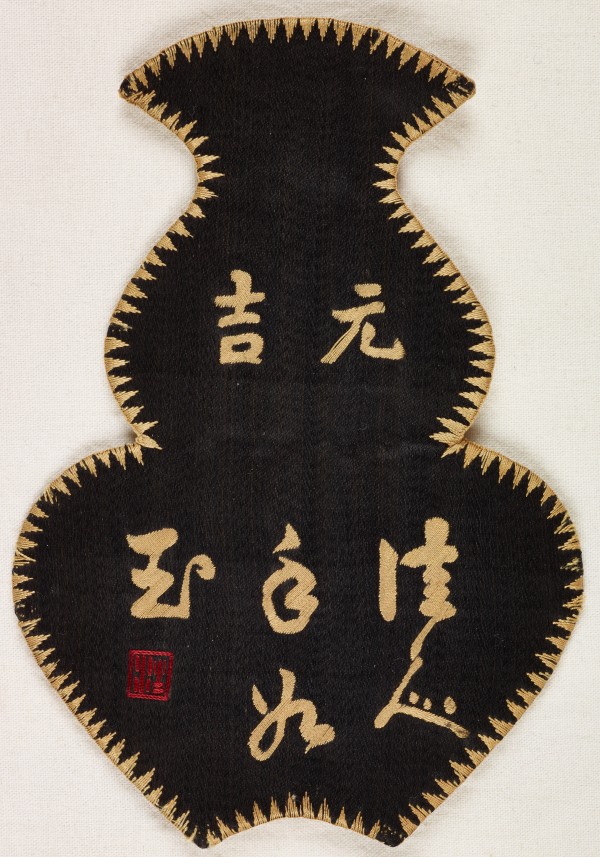 元吉
佳人
如
玉